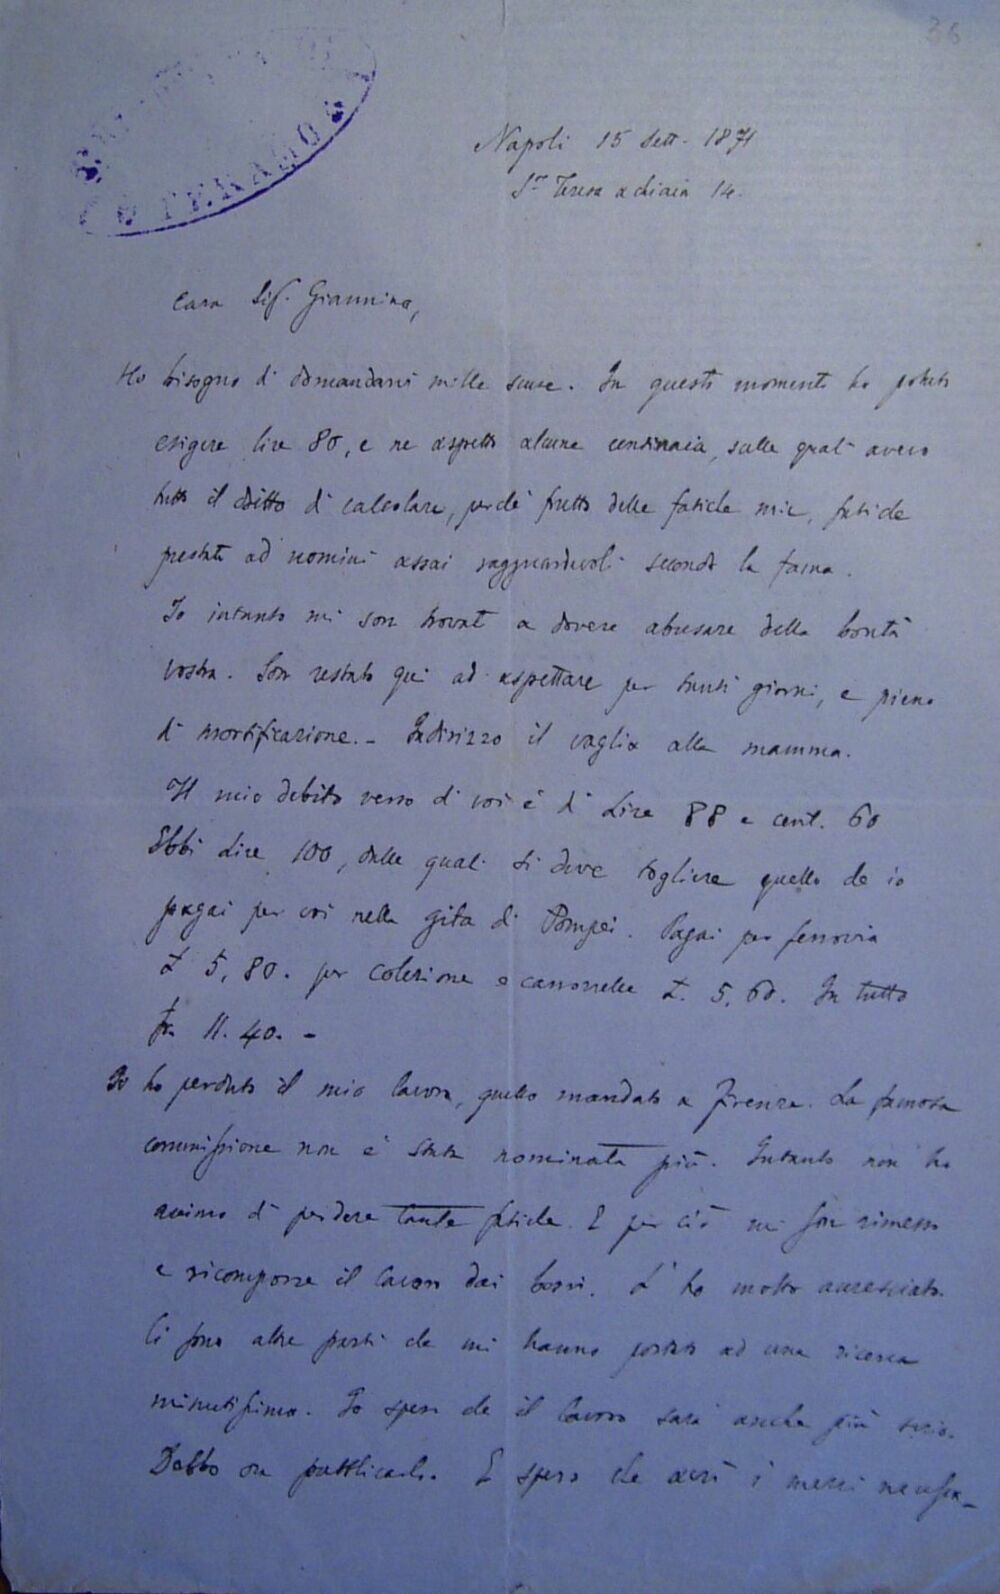 36
TERAMO
Napoli 15 Sett. 1871
S.ta Teresa a chiaia 14.
Cara Sig. Giannina,
Ho bisogno di domandarvi mille scuse. In questi momenti ho potuto
esigere lire 80, e ne aspetto alcune centinaia, sulle quali avevo
tutto il dritto di calcolare, perchè frutto delle fatiche mie, fatiche
prestate ad uomini assai ragguardevoli secondo la fama.
Io intanto mi son trovato a dovere abusare della bontà
vostra. Son restato qui ad aspettare per tanti giorni, e pieno
di mortificazione. - Indirizzo il vaglia alla mamma.
Il mio debito verso di voi è di Lire 88 e cent. 60
Ebbi Lire 100, dalle quali si deve togliere quello che io
pagai per voi nella gita di Pompei. Pagai per ferrovia
£ 5,80. per colezione e carrozzelle £. 5,60. In tutto
fr. 11.40. -
Io ho perduto il mio lavoro, quello mandato a Firenze. La famosa
commissione non è stata nominata più. Intanto non ho
animo di perdere tante fatiche. E per ciò mi son rimesso
a ricomporre il lavoro dai bozzi. L'ho molto accresciuto.
Ci sono altre parti che mi hanno portato ad una ricerca
minutissima. Io spero che il lavoro sarà anche più serio.
Debbo ora pubblicarlo. E spero che avrò i mezzi necessa-